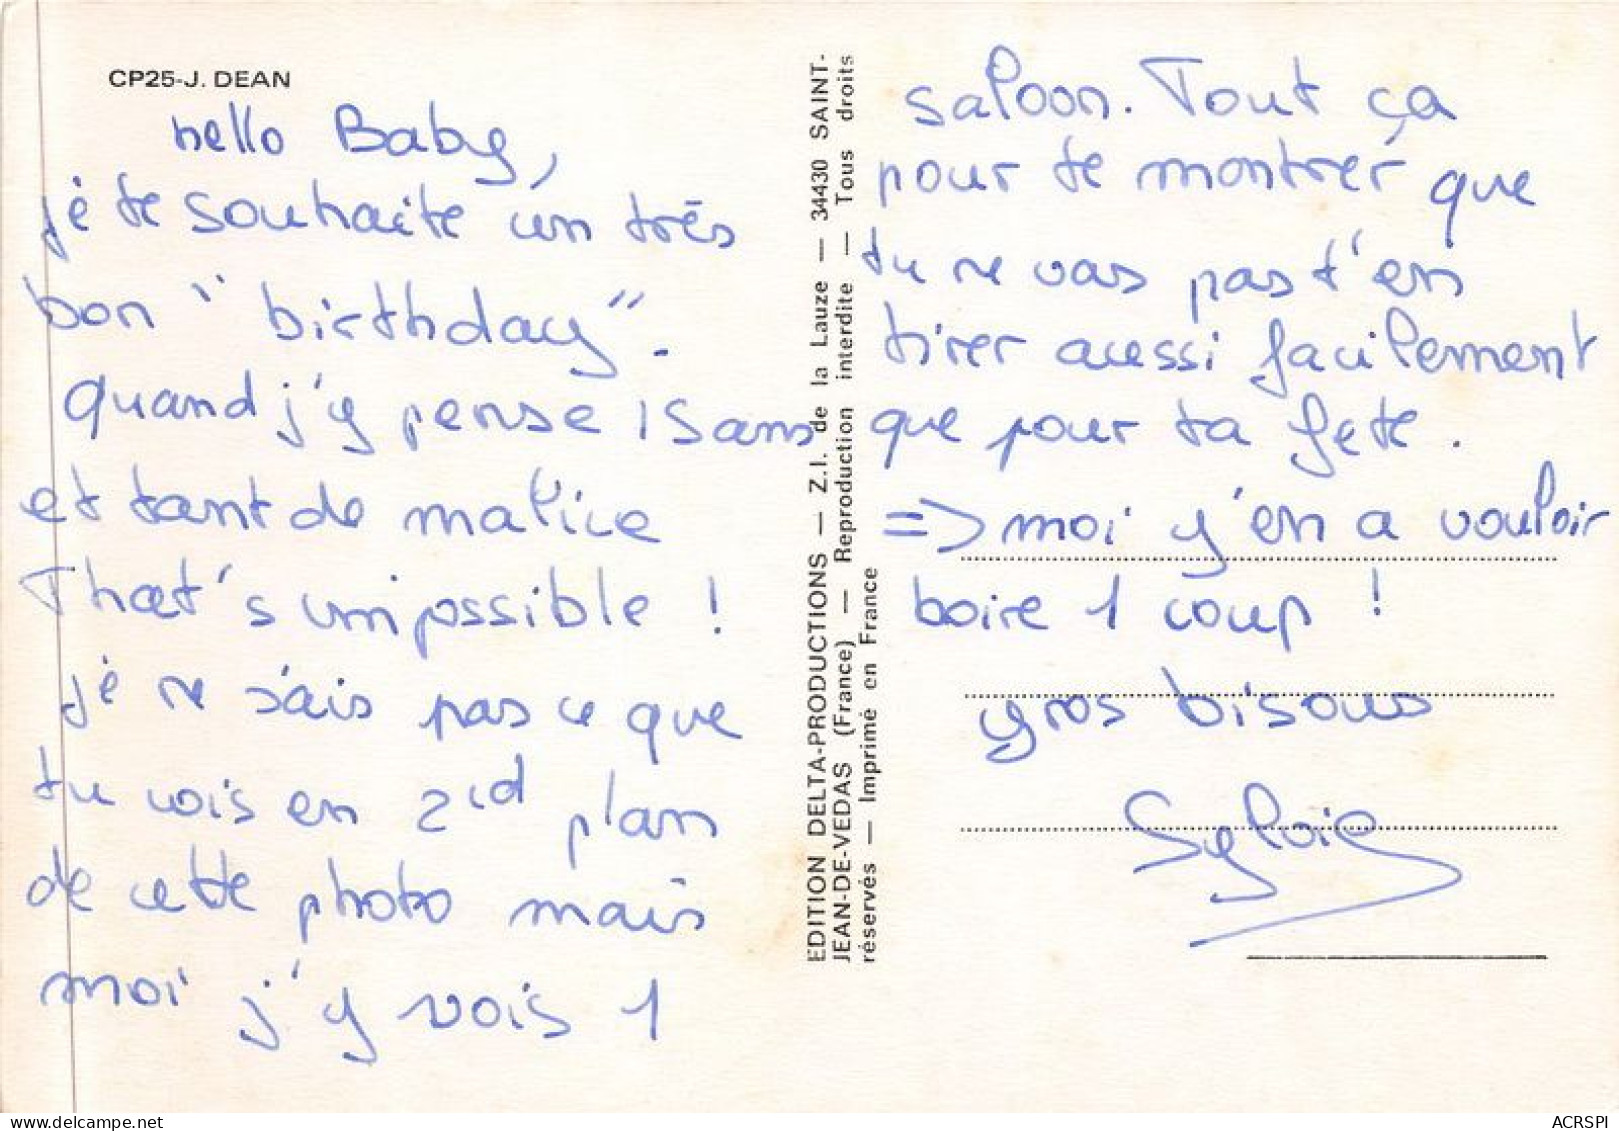 CP25-J. DEAN
hello Baby,
je te souhaite un très
bon "birthday".
quand j'y pense 15ans
et tant de malice
That's impossible !
je ne sais pas ce que
tu vois en 2nd plan
de cette photo mais
moi j'y vois 1
EDITION DELTA-PRODUCTIONS — Z.I. de la Lauze — 34430 SAINT-
JEAN-DE-VEDAS (France) — Reproduction interdite — Tous droits
réservés — Imprimé en France
saloon. Tout ça
pour te montrer que
tu ne vas pas t'en
tirer aussi facilement
que pour ta fête.
=> moi y'en a vouloir
boire 1 coup !
gros bisous
Sylvie
delcampe.net
ACRSPI